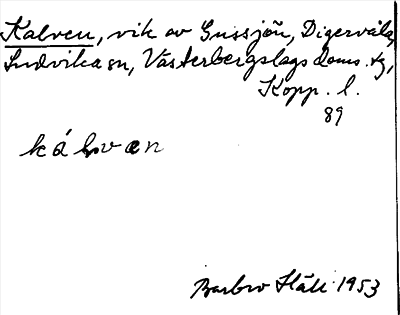 Kalven, vik av Gussjön, Digervåla,
Ludvika sn, Västerbergslags doms. tg,
Kopp. l.
89
Barbro 1953